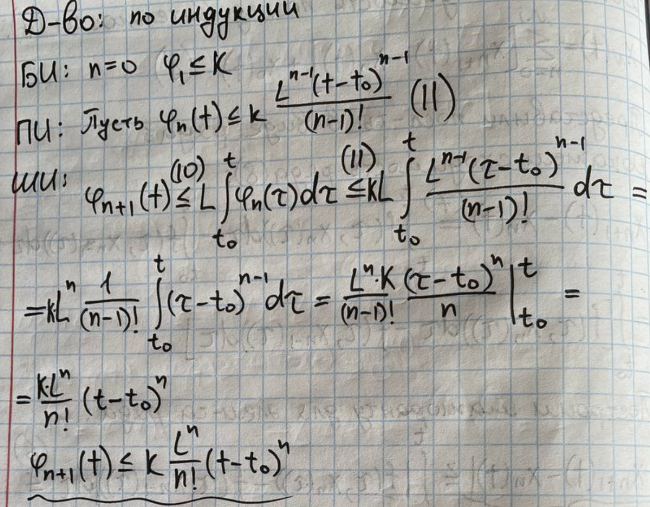 Д-во: по индукции
БИ: n=0 φ₁ ≤ K
ПИ: Пусть φₙ(t) ≤ k \frac{L^{n-1}(t-t₀)^{n-1}}{(n-1)!} (11)
ШИ: φₙ₊₁(t) \overset{(10)}{≤} L \int_{t₀}^{t} φₙ(τ)dτ \overset{(11)}{≤} kL \int_{t₀}^{t} \frac{L^{n-1}(τ-t₀)^{n-1}}{(n-1)!} dτ =
= kLⁿ \frac{1}{(n-1)!} \int_{t₀}^{t} (τ-t₀)^{n-1} dτ = \frac{Lⁿ·K}{(n-1)!} \frac{(τ-t₀)ⁿ}{n} |_{t₀}^{t} =
= \frac{k·Lⁿ}{n!} (t-t₀)ⁿ
φₙ₊₁(t) ≤ k \frac{Lⁿ}{n!} (t-t₀)ⁿ